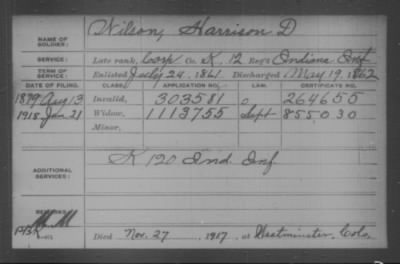 NAME OF SOLDIER: Wilson, Harrison D
SERVICE: Late rank, Corp Co. K, 12 Reg't Indiana Inf
TERM OF SERVICE: Enlisted July 24, 1861. Discharged May 19, 1862
DATE OF FILING. CLASS. APPLICATION NO. LAW. CERTIFICATE NO.
1879 Aug 13 Invalid, 303581 264655
1918 Jan 21 Widow, 1113755 Sept 855030
Minor,
ADDITIONAL SERVICES: K 120 Ind. Inf
REMARKS:
Died Nov. 27, 1917, at Westminster, Colo.